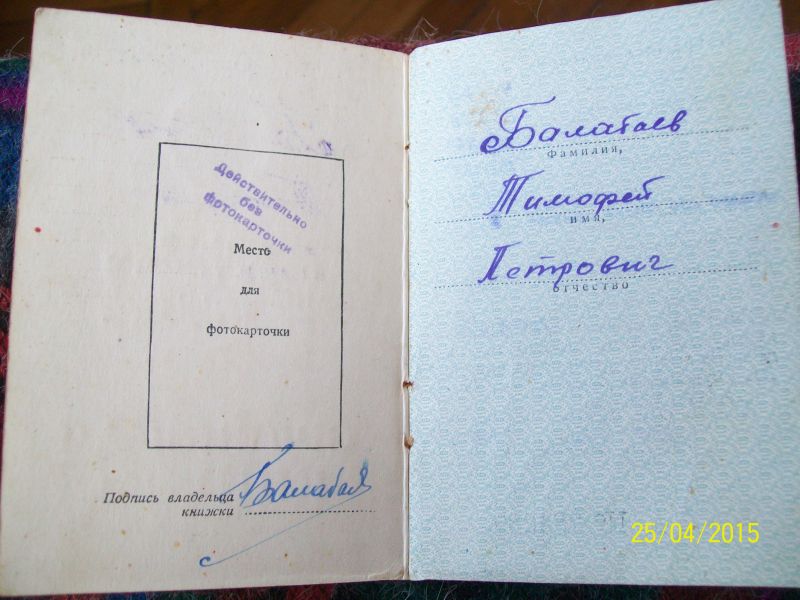 Действительно
без
фотокарточки
Место
для
фотокарточки
Подпись владельца
книжки
Балабаев
фамилия,
Тимофей
имя,
Петрович
отчество
25/04/2015